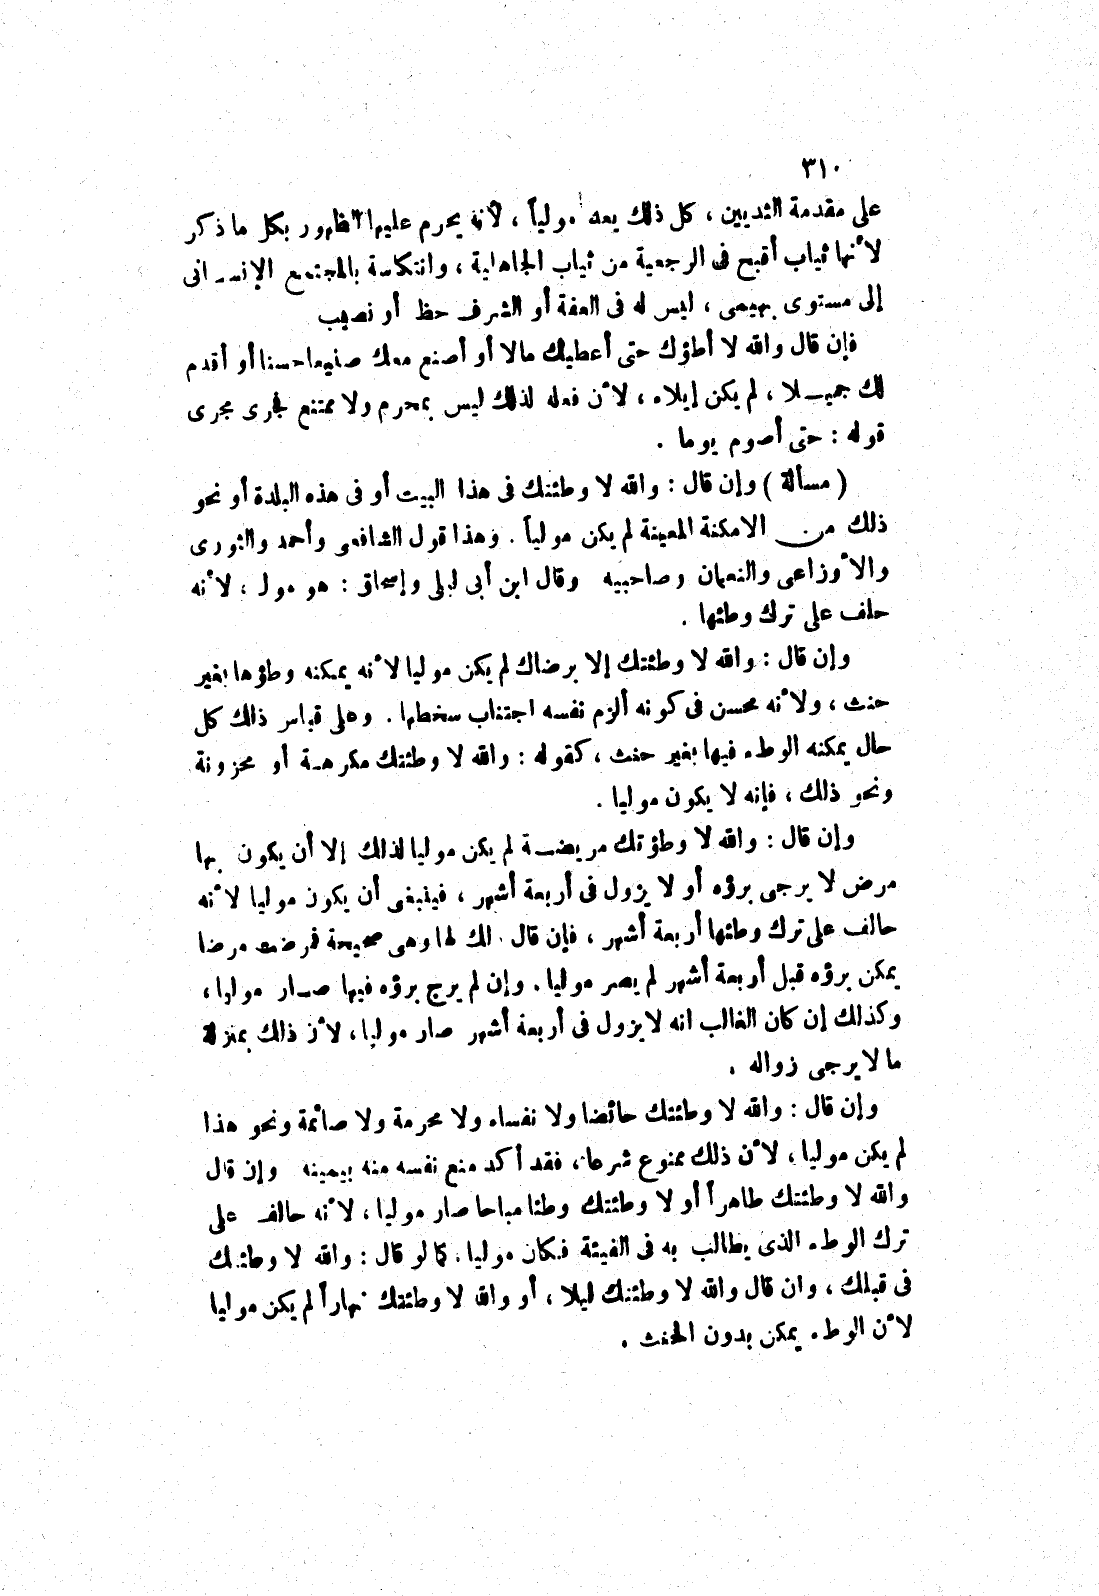 ٣١٠
على مقدمة الثديين ، كل ذلك يعد مولياً ، لأنه يحرم عليها الظهور بكل ما ذكر
لأنها ثياب أقبح فى الرجعية من ثياب الجاهلية ، وانتكاسة بالمجتمع الإنسانى
إلى مستوى بهيمى ، ليس له فى العفة أو الشرف حظ أو نصيب
فإن قال والله لا أطؤك حتى أعطيك مالا أو أصنع معك صنيعا حسنا أو أقدم
لك جميلا ، لم يكن إيلاء ، لأن فعله لذلك ليس بمحرم ولا ممتنع فجرى مجرى
قوله : حتى أصوم يوما .
( مسألة ) وإن قال : والله لا وطئتك فى هذا البيت أو فى هذه البلدة أو نحو
ذلك من الامكنة المعينة لم يكن مولياً . وهذا قول الشافعى وأحمد والثورى
والأوزاعى والنعمان وصاحبيه وقال ابن أبى ليلى وإسحاق : هو مول ، لأنه
حلف على ترك وطئها .
وإن قال : والله لا وطئتك إلا برضاك لم يكن موليا لأنه يمكنه وطؤها بغير
حنث ، ولأنه محسن فى كونه ألزم نفسه اجتناب سخطها . وعلى قياس ذلك كل
حال يمكنه الوطء فيها بغير حنث ، كقوله : والله لا وطئتك مكرهة أو محزونة
ونحو ذلك ، فإنه لا يكون موليا .
وإن قال : والله لا وطؤتك مريضة لم يكن موليا لذلك إلا أن يكون بها
مرض لا يرجى برؤه أو لا يزول فى أربعة أشهر ، فينبغى أن يكون موليا لأنه
حالف على ترك وطئها أربعة أشهر ، فإن قال ذلك لها وهى صحيحة فمرضت مرضا
يمكن برؤه قبل أربعة أشهر لم يصر موليا . وإن لم يرج برؤه فيها صار موليا ،
وكذلك إن كان الغالب انه لا يزول فى أربعة أشهر صار موليا ، لأن ذلك بمنزلة
ما لا يرجى زواله .
وإن قال : والله لا وطئتك حائضا ولا نفساء ولا محرمة ولا صائمة ونحو هذا
لم يكن موليا ، لأن ذلك ممنوع شرعا ، فقد أكد منع نفسه منه بيمينه وإن قال
والله لا وطئتك طاهراً أو لا وطئتك وطئا مباحا صار موليا ، لأنه حالف على
ترك الوطء الذى يطالب به فى الفيئة فكان موليا . كما لو قال : والله لا وطئتك
فى قبلك ، وان قال والله لا وطئتك ليلا ، أو والله لا وطئتك نهاراً لم يكن موليا
لأن الوطء يمكن بدون الحنث .